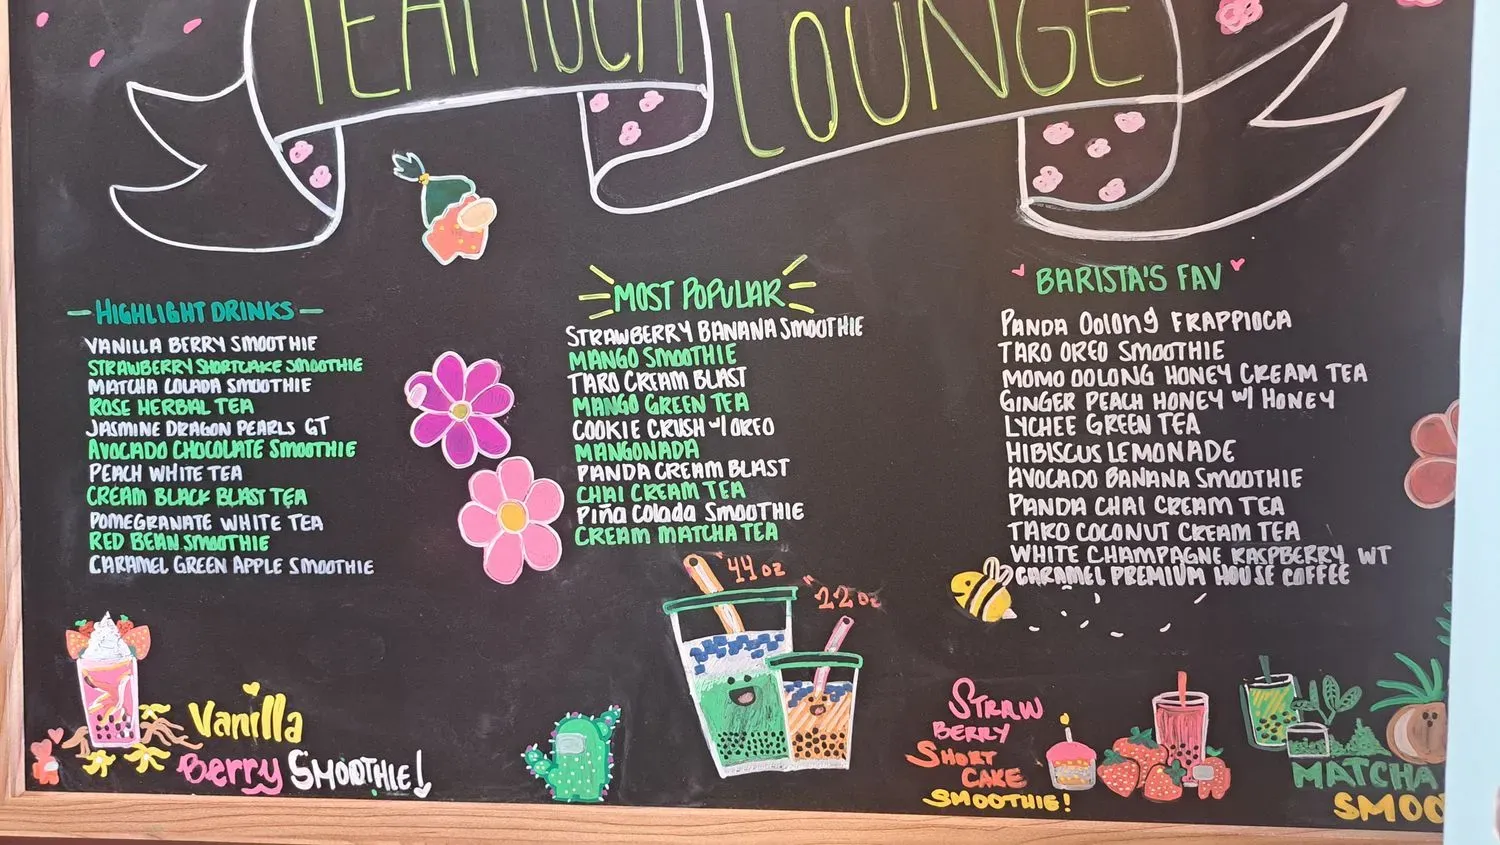 LOUNGE
HIGHLIGHT DRINKS
VANILLA BERRY SMOOTHIE
STRAWBERRY SHORTCAKE SMOOTHIE
MATCHA COLADA SMOOTHIE
ROSE HERBAL TEA
JASMINE DRAGON PEARLS GT
AVOCADO CHOCOLATE SMOOTHIE
PEACH WHITE TEA
CREAM BLACK BLAST TEA
POMEGRANATE WHITE TEA
RED BEAN SMOOTHIE
CARAMEL GREEN APPLE SMOOTHIE
MOST POPULAR
STRAWBERRY BANANA SMOOTHIE
MANGO SMOOTHIE
TARO CREAM BLAST
MANGO GREEN TEA
COOKIE CRUSH W/ OREO
MANGONADA
PANDA CREAM BLAST
CHAI CREAM TEA
Piña Colada SMOOTHIE
CREAM MATCHA TEA
BARISTA'S FAV
PANDA Oolong FRAPPIOCA
TARO OREO SMOOTHIE
MOMO OOLONG HONEY CREAM TEA
GINGER PEACH HONEY W/ HONEY
LYCHEE GREEN TEA
HIBISCUS LEMONADE
AVOCADO BANANA SMOOTHIE
PANDA CHAI CREAM TEA
TARO COCONUT CREAM TEA
WHITE CHAMPAGNE RASPBERRY WT
CARAMEL PREMIUM HOUSE COFFEE
44 oz
22 oz
Vanilla
Berry SMOOTHIE!
STRAW
BERRY
SHORT
CAKE
SMOOTHIE!
MATCHA
SMOO